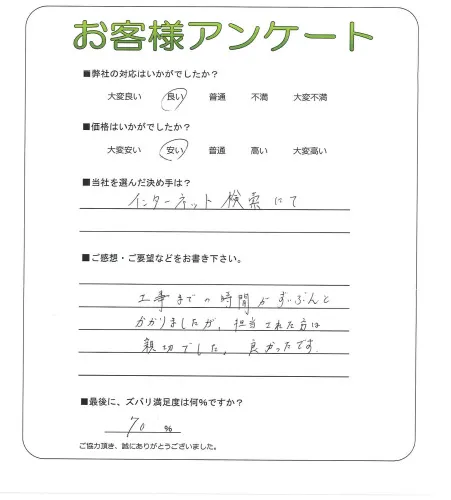 お客様アンケート
■弊社の対応はいかがでしたか？
大変良い 良い 普通 不満 大変不満
■価格はいかがでしたか？
大変安い 安い 普通 高い 大変高い
■当社を選んだ決め手は？
インターネット検索にて
■ご感想・ご要望などをお書き下さい。
工事までの時間がずいぶんと
かかりましたが、担当された方は
親切でした。良かったです.
■最後に、ズバリ満足度は何%ですか？
70 %
ご協力頂き、誠にありがとうございました。